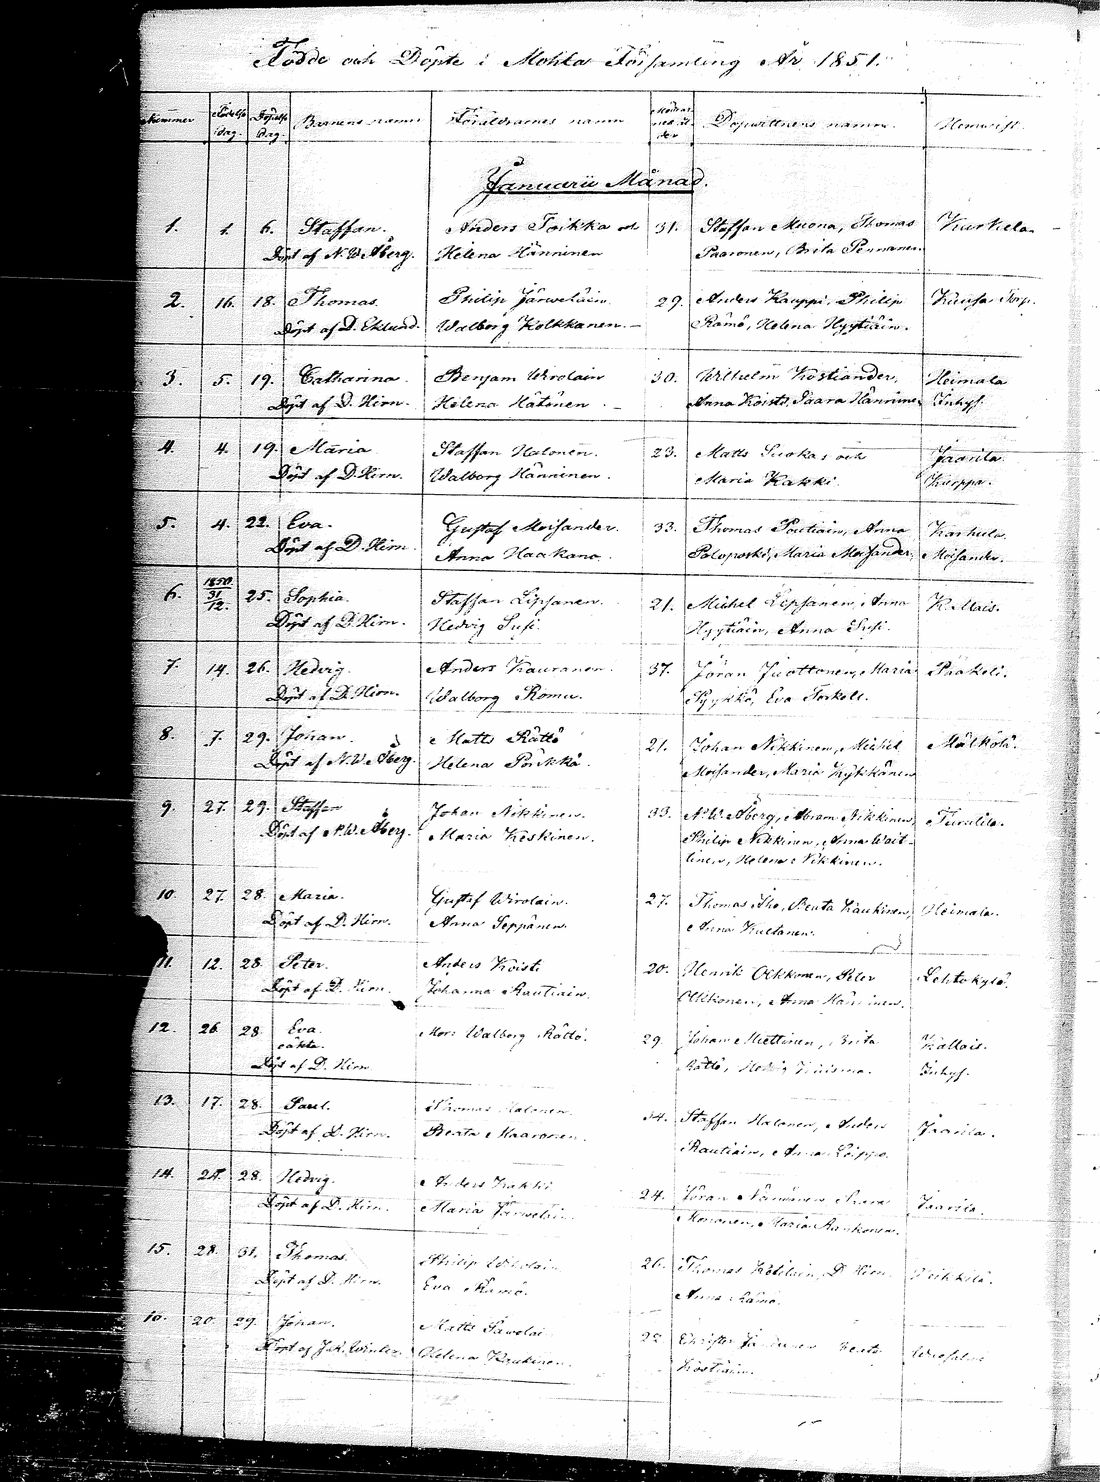 Födde och Döpte i Mohla Församling År 1851.
Nummer Födelse dag. Döpelse dag. Barnens namn Föräldrarnes namn Modrens ålder Dopvittnens namn. Hemvist.
Januarii Månad.
1. 1. 6. Staffan. Anders Toikka och 31. Staffan Muona, Thomas Kurkela
Döpt af N. W. Åberg. Helena Hänninen Paavonen, Brita Pennanen
2. 16. 18. Thomas. Philip Järweläin 29. Anders Kauppi, Philip Kuusa Torp.
Döpt af D. Eklund. Walborg Kolkkanen. Rämö, Helena Hyytiäin.
3. 5. 19. Catharina. Benjam Wirolain 30. Wilhelm Köstiander, Heimala
Döpt af D. Hirn. Helena Hätönen Anna Koisti, Saara Hänninen Inhys.
4. 4. 19. Maria Staffan Halonen. 23. Matts Suokas och Jaarila
Döpt af D. Hirn. Walborg Hänninen. Maria Kakki. Kurppa.
5. 4. 22. Eva. Gustaf Moisander. 33. Thomas Poutiain, Anna Karhula
Döpt af D. Hirn Anna Haakana Maria Moisander, Moisander.
6. 1850 31/12. 25. Sophia. Staffan Lipsanen. 21. Michel Lipsanen, Anna K. Mais.
Döpt af D. Hirn. Hedvig Susi. Hyytiäin, Anna Susi.
7. 14. 26. Hedvig. Anders Kauranen. 37. Jöran Juottonen, Maria Pääkeli.
Döpt af D. Hirn. Walborg Romu. Pyykkö, Eva Torkell.
8. 7. 29. Johan. Matts Rättö 21. Johan Nikkinen, Michel Mälkölä.
Döpt af N. W. Åberg. Helena Pörkkä. Moisander, Maria Kytkkänen
9. 27. 29. Staffan Johan Nikkinen. 33. N. W. Åberg, Abram Nikkinen, Turulila.
Döpt af N. W. Åberg. Maria Keskinen. Philip Nikkinen, Anna Wait-
linen, Helena Nikkinen.
10. 27. 28. Maria. Gustaf Wirolain. 27. Thomas Aho, Beata Kaukinen, Heimala.
Döpt af D. Hirn. Anna Seppänen. Anna Kultanen.
11. 12. 28. Peter. Anders Koisti 20. Henrik Olkkonen, Peter Lehtokylä.
Döpt af D. Hirn. Johanna Rautiain. Olkkonen, Anna Hänninen.
12. 26. 28. Eva. Mor: Walborg Rättö. 29. Johan Miettinen, Brita Kallais.
oäkta.
Döpt af D. Hirn Rättö, Hedvig Kuisma. Inhys.
13. 17. 28. Paul. Thomas Halonen. 34. Staffan Halonen, Anders Jaarila.
Döpt af D. Hirn. Beata Maaronen. Rautiain, Anna Leippo.
14. 24. 28. Hedvig. Anders Kakki 24. Jöran Jaarila.
Döpt af D. Hirn. Maria Järweläin Mononen, Maria Raukonen.
15. 28. 31. Thomas. Philip Wirolain 26. Thomas D. Hirn Heikkilä.
Döpt af D. Hirn. Eva Rämö. Anna Rämö.
16. 20. 29. Johan. Matts Pawolai 22. Christer
Döpt af Joh. Winter. Helena Kaukinen. Köstiäin.